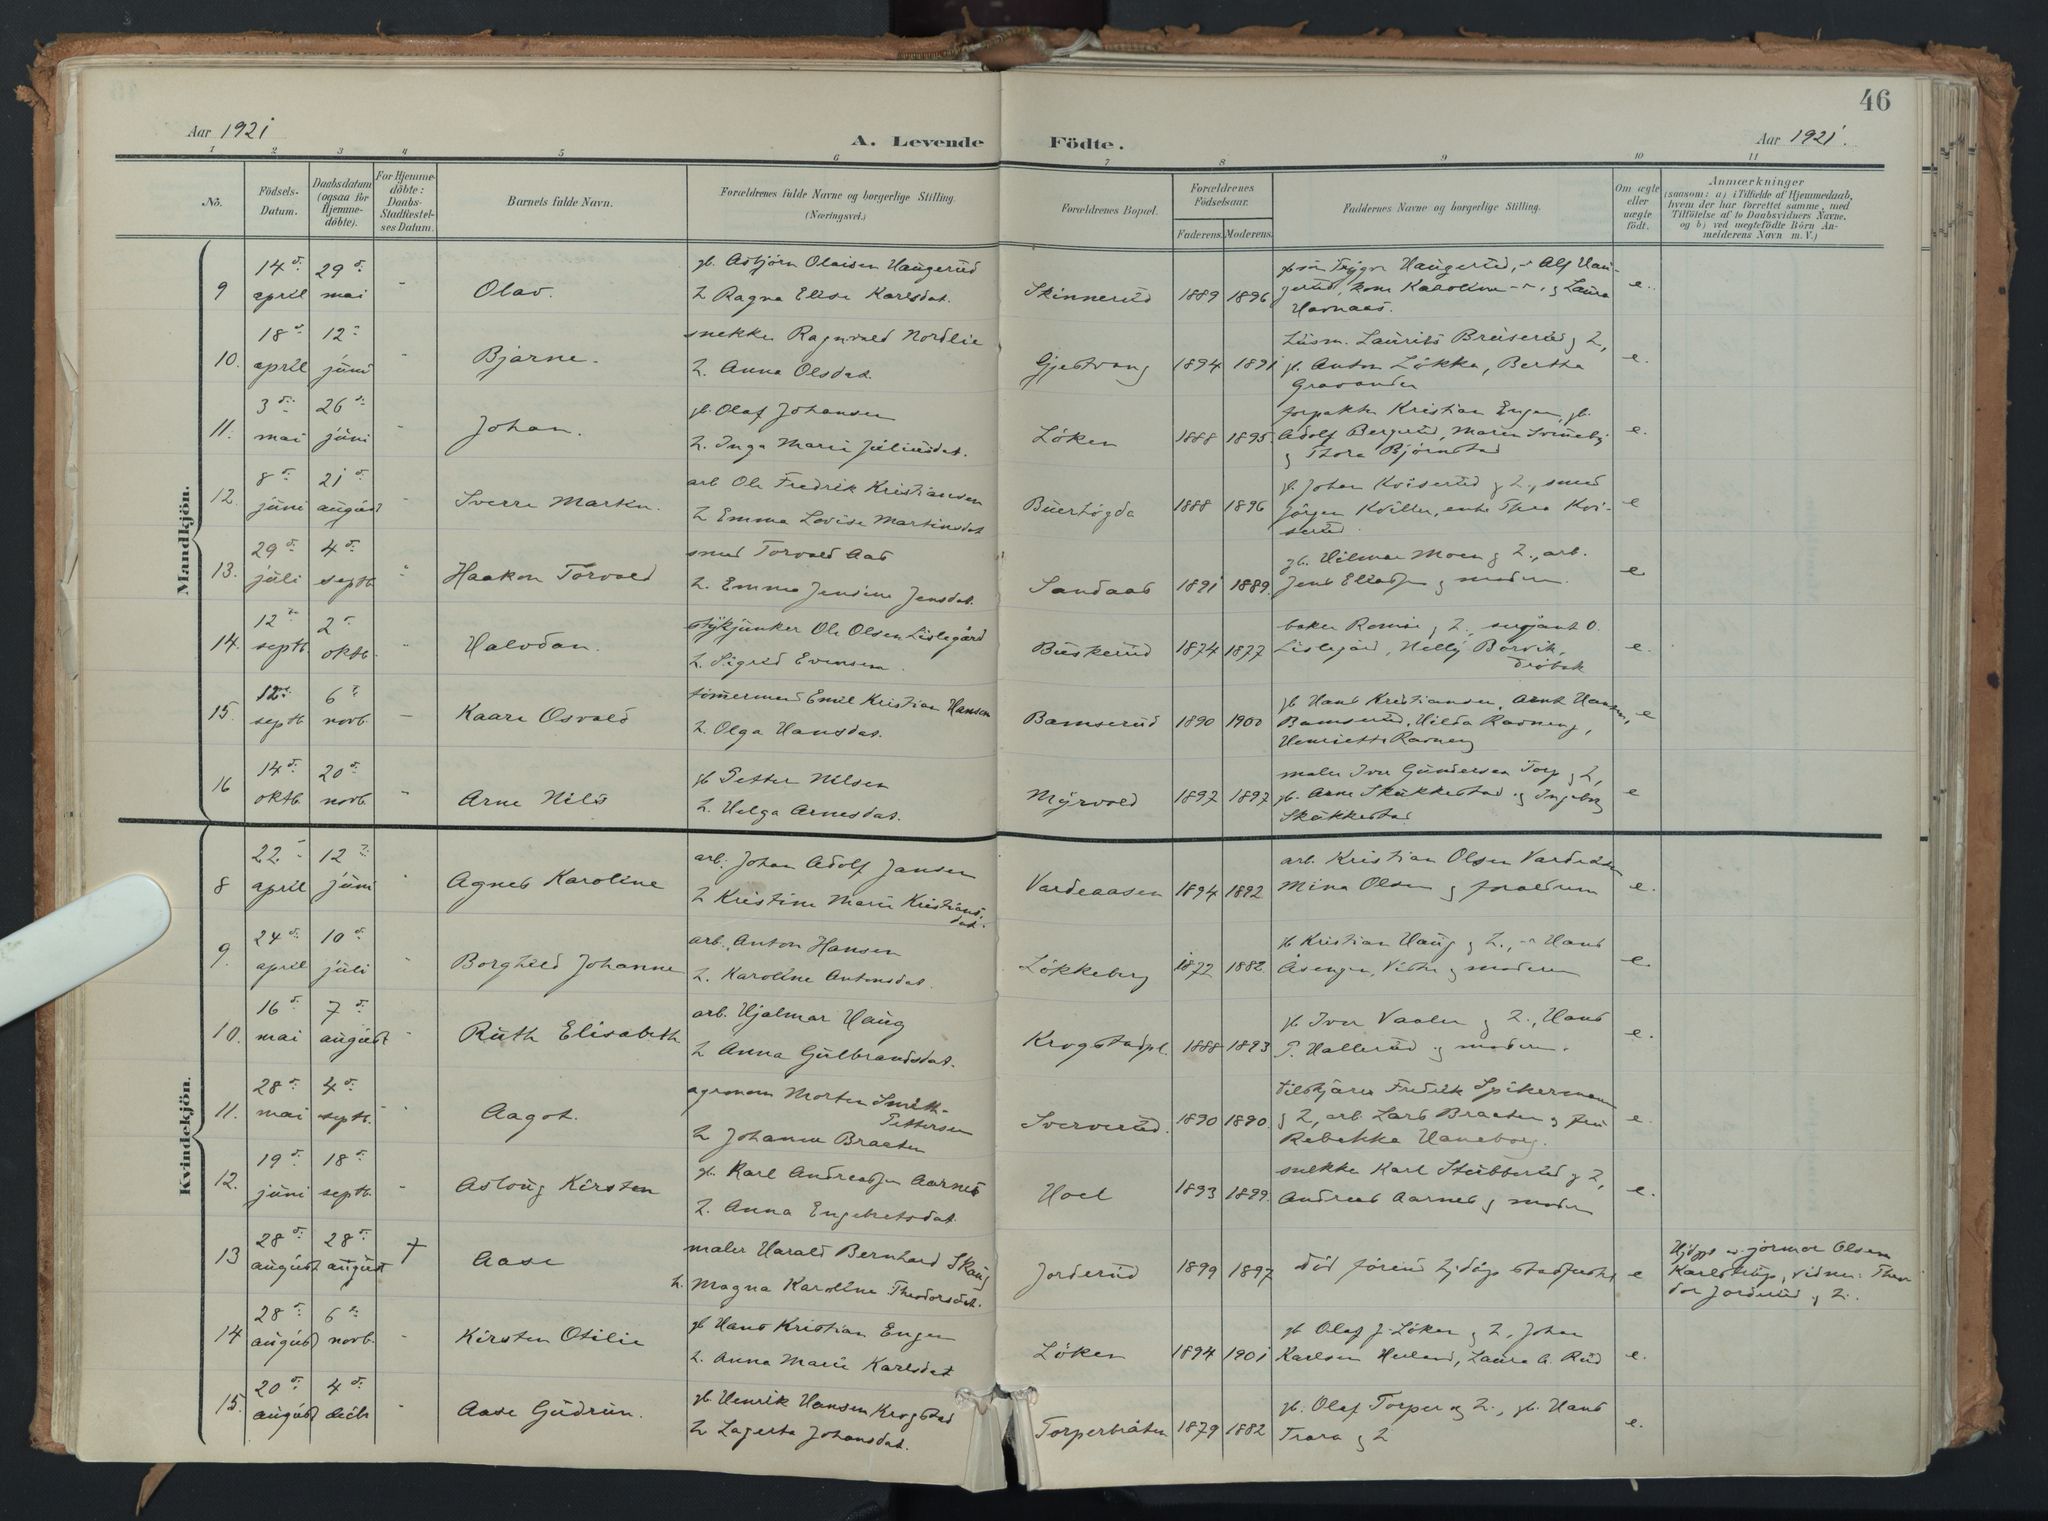 46
Aar 1921
A. Levende Födte.
Aar 1921.
1 2 3 4 5 6 7 8 9 10 11
No.
Födsels-
Datum.
Daabsdatum
(ogsaa for
Hjemme-
döbte).
For Hjemme-
döbte:
Daabs-
Stadfæstel-
ses Datum.
Barnets fulde Navn.
Forældrenes fulde Navne og borgerlige Stilling.
(Næringsvei.)
Forældrenes Bopæl.
Forældrenes
Födselsaar.
Faderens. Moderens.
Faddernes Navne og borgerlige Stilling.
Om ægte
eller
uægte
födt.
Anmærkninger
(saasom: a) i Tilfælde af Hjemmedaab,
hvem der har forrettet samme, med
Tilföielse af to Daabsvidners Navne,
og b) ved uægtefödte Börn An-
melderens Navn m. V.)
Mandkjön.
9 14 april 29 mai Olav. gb. Asbjörn Olaisen Haugerud
h. Ragna Elise Karlsdat. Skinnerud 1889 1896
Trygve Haugerud, Alf Hau-
gerud, Karoline, og Laura
Havnaas. e.
10. 18 april 12 juni Bjarne. snekker Ragnvald Nordlie
h. Anna Olsdat. Gjestvang 1894 1891
Lausm. Laurits Bruserud og h,
gb. Anton Løkka, Bertha
Gravander e.
11. 3 mai 26 juni Johan. gb. Olaf Johansen
h. Inga Marie Juliusdat. Löken 1888 1895.
forpakter Kristian Engen, gb.
Adolf Bergerud, Maren Svineby
og Thora Bjørnstad e.
12. 8 juni 21 august Sverre Martin. arb Ole Fredrik Kristiansen
h Emma Lovise Martinsdat Buerhøgda 1888 1896
gb. Johan Kviserud og h., smed
Jörgen Kviller, enke Thea Kvi-
serud e
13. 29 juli 4 septb. Haakon Torvald smed Torvald Aas
h. Emma Jensine Jensdat. Sandaas 1891 1889.
gb. Hilmar Moen og h., arb.
Jens Eliassen og moderen. e
14. 12 septb. 2 oktb. Halvdan. stykjunker Ole Olsen Lislegård
h. Sigrid Evensen. Buskerud 1874 1877
baker Romsi og h., sersjant O.
Lislegård, Nelly Börvik,
Dröbak e.
15. 12 septb. 6 novb. Kaare Osvald tömermand Emil Kristian Hansen
h. Olga Hansdat. Bamserud 1890 1900
gb Hans Kristiansen, Arnt Hansen,
Bamserud, Hilda Ravneng,
Henriette Ravneng e
16 14 oktb. 20 novb. Arne Nils gb Petter Nilsen
h. Helga Arnesdat. Myrvold 1897 1897
maler Iver Gundersen Torp og h,
gb. Arne Skukkestad og Ingeborg
Skukkestad e
Kvindekjön.
8 22 april 12 juni Agnes Karoline arb. Johan Adolf Jansen
h Kristine Marie Kristians-
dat. Vardeaasen 1894 1892
arb. Kristian Olsen Vardeåsen
Mina Olsen og forældrene e.
9. 24 april 10 juli Borghild Johanne arb. Anton Hansen
h. Karoline Antonsdat. Lökkeberg 1872 1882
gb Kristian Haug og h., Hans
Åsengen, og moderen e.
10. 16 mai 7 august Ruth Elisabeth arb. Hjalmar Haug
h Anna Gulbrandsdat. Krogstadpl. 1888 1893
gb Iver Vaaler og h., Hans
P. Hallerud og moderen. e.
11. 28 mai 4 septb. Aagot. agronom Morten Smith-
Pettersen
h Johanne Braaten Sververud. 1890 1890.
tilskjærer Fredrik Spikermann
og h, arb. Lars Braaten og fru
Rebekka Haneborg. e.
12. 19 juni 18 septb. Aslaug Kirsten gb. Karl Andreassen Aarnes
h. Anna Engebretsdat. Hoel 1893 1899.
snekker Karl Stubberud og h,
Andreas Aarnes og moderen e.
13 28 august 28 august † Aase maler Harald Bernhard Skaug
h. Magna Karoline Theodorsdat. Jorderud 1899 1897
död förend hjdåps stadfestet e
Hjdpt av jormor Olsen
Karlstrup, vidner: Theo-
dor Jorderud og h.
14 28 august 6 novb. Kirsten Otilie gb Hans Kristian Engen
h. Anna Marie Karlsdat Löken 1894 1901
gb Olaf J. Löken og h, Johan
Karlsen Heiland, Laura A. Rud e.
15. 20 august 4 decbr Aase Gudrun. gb. Henrik Hansen Krogstad
h Lagerta Johansdat. Torperbråten 1879 1882
gb. Olaf Torper og h., gb. Hans
Trara og h e.